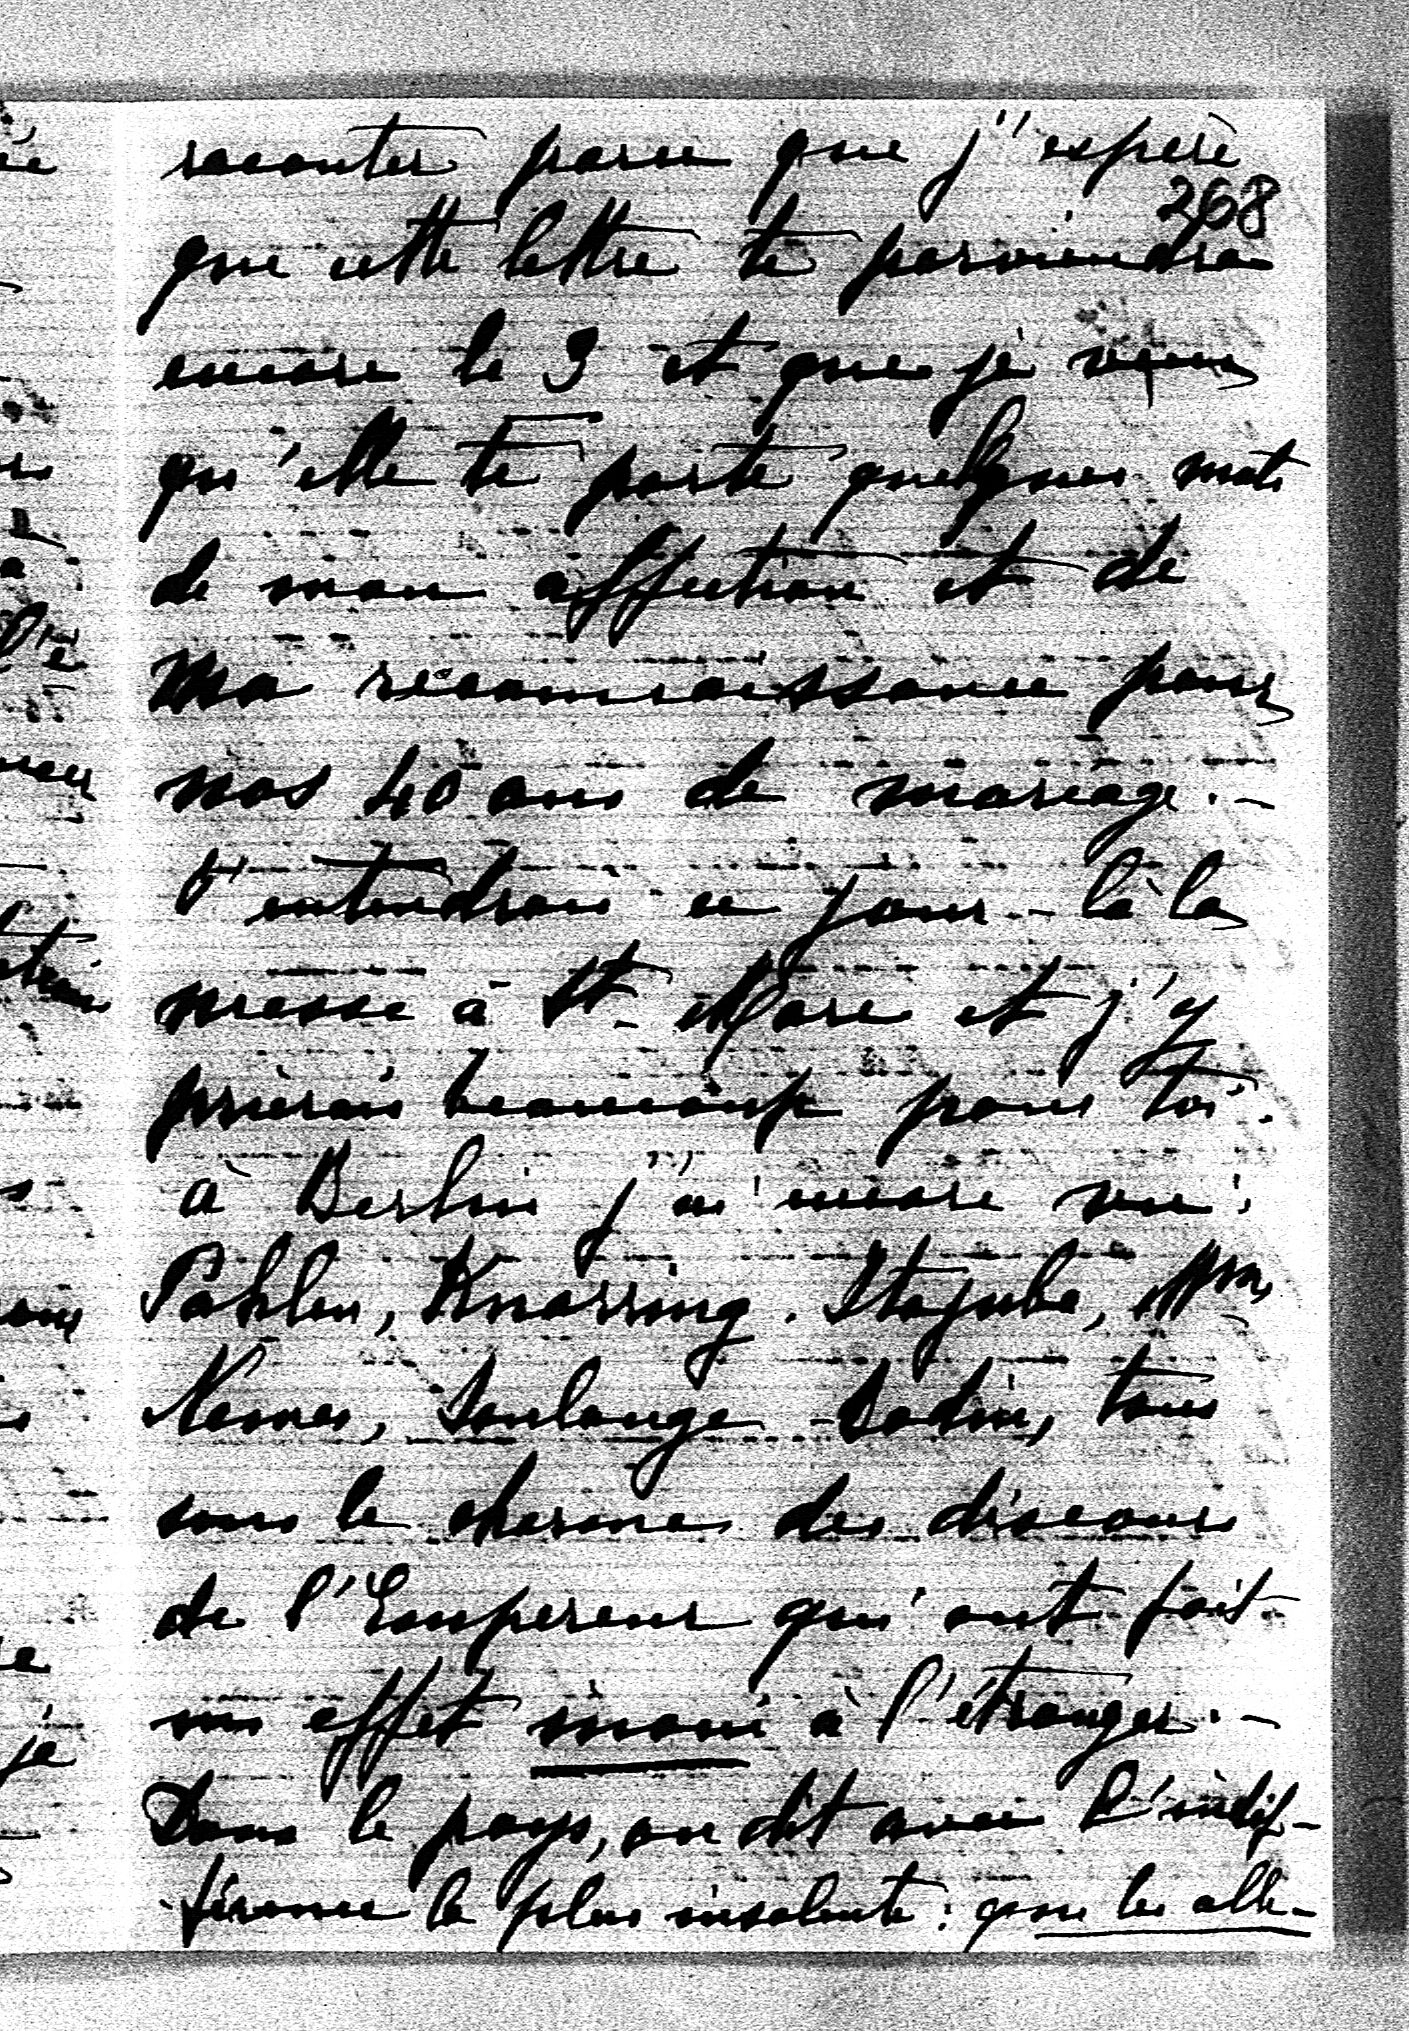 raconter parce que j'espère
268
que cette lettre te parviendra
encore le 3 et que je veux
qu'elle te porte quelques mots
de mon affection et de
ma reconnaissance pour
nos 40 ans de mariage. -
J'entendrai ce jour-là la
messe à St. Marc et j'y
prierai beaucoup pour toi.
à Berlin j'ai encore vu:
Pahlen, Knorring. Itajuba, Mm
Nemes, Soulange-Bodin, tous
sous le charme des discours
de l'Empereur qui ont fait
un effet inoui à l'étranger. -
Dans le pays, on dit avec l'indif-
férence la plus insolente: que les alle-